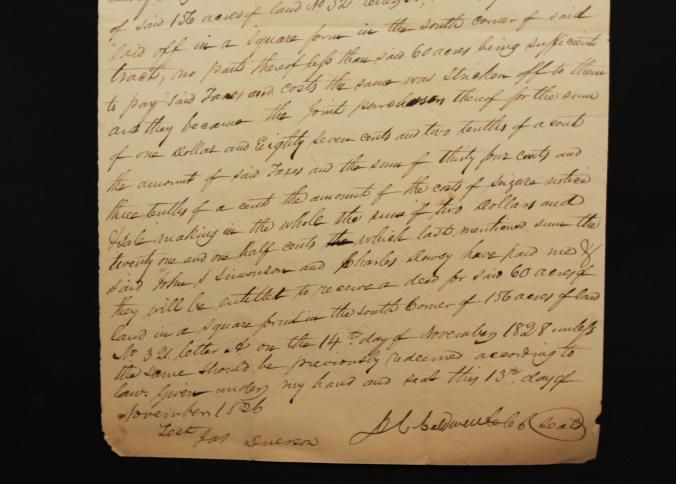 of said 156 acres of land No 321 letter A,
laid off in a Square form in the south corner of said
tract, no part thereof less than said 60 acres being sufficient
to pay said Taxes and costs the same was stricken off to them
and they became the Joint purchasers thereof for the sum
of one Dollar and Eighty Seven cents and two tenths of a cent
the amount of said Taxes and the sum of thirty four cents and
three tenths of a cent the amount of the costs of Seizure notice
& sale making in the whole the sum of two Dollars and
twenty one and one half cents which last mentioned sum the
said John S Simonson and Charles Dewey have paid me &
they will be entitled to receive a deed for said 60 acres of
land in a Square form in the South Corner of 156 acres of land
No 321 letter A on the 14th day of November 1828 unless
the same should be previously redeemed according to
law. Given under my hand and seal this 13th day of
November 1826
Test
Caldwell seal